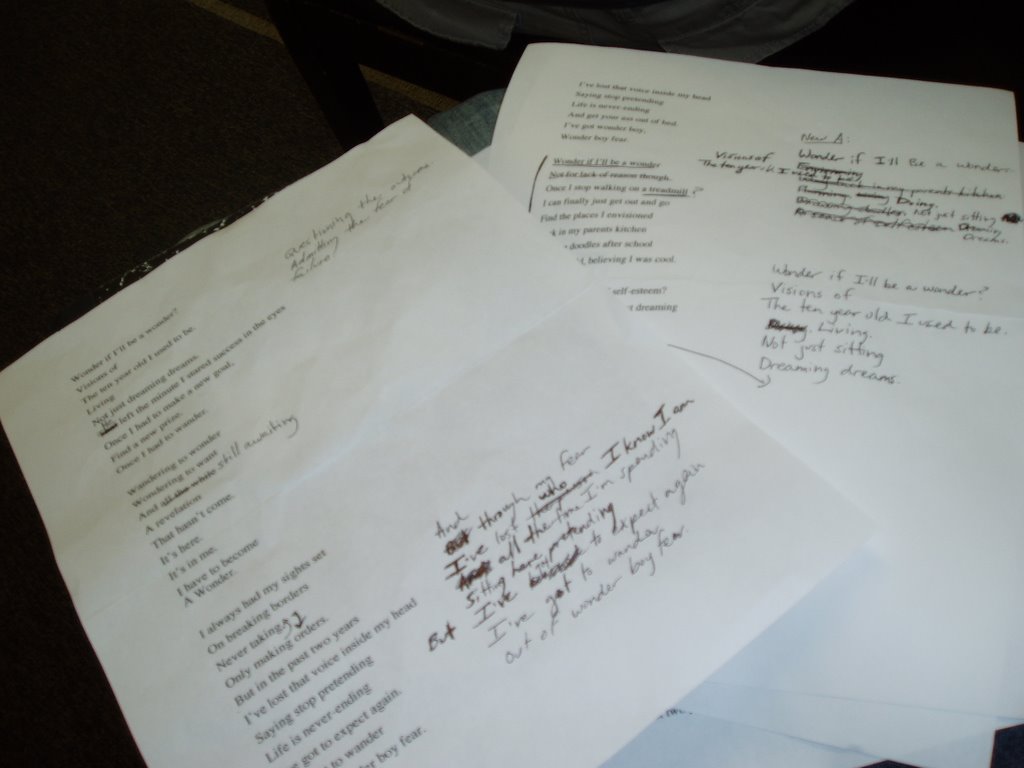 Questioning the outcome
Admitting the fear of
failure!
Wonder if I'll be a wonder?
Visions of
The ten year old I used to be.
Living
Not just dreaming dreams.
left the minute I stared success in the eyes
Once I had to make a new goal.
Find a new prize.
Once I had to wander.
Wandering to wonder
Wondering to want
And all the while still awaiting
A revelation
That hasn't come.
It's here.
It's in me.
I have to become
A Wonder.
I always had my sights set
On breaking borders
Never taking
Only making orders.
But in the past two years
I've lost that voice inside my head
Saying stop pretending
Life is never-ending
got to expect again.
to wander
boy fear.
And
But through my fear
I've lost who I know I am
all the time I'm spending
Sitting here pretending
But I've to expect again
I've got to wander
out of wonder boy fear.
I've lost that voice inside my head
Saying stop pretending
Life is never-ending
And get your ass out of bed.
I've got wonder boy,
Wonder boy fear.
Wonder if I'll be a wonder
Not for lack of reason though.
Once I stop walking on a treadmill ?
I can finally just get out and go
Find the places I envisioned
in my parents kitchen
doodles after school
believing I was cool.
self-esteem?
dreaming
New A:
Wonder if I'll Be a wonder.
Visions of
The ten year old I used to be,
in my parents kitchen
Doing.
not just sitting
Dreaming
Dreams.
Wonder if I'll be a wonder?
Visions of
The ten year old I used to be.
Living.
Not just sitting
Dreaming dreams.